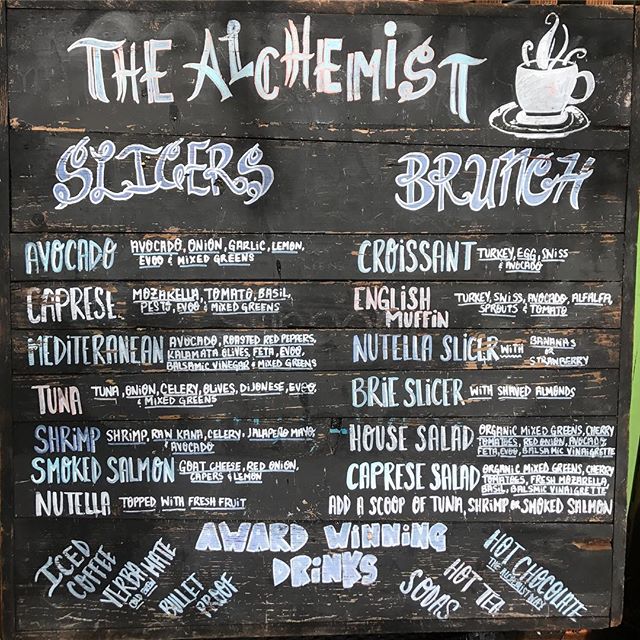 THE ALCHEMIST
SLICERS
AVOCADO AVOCADO, ONION, GARLIC, LEMON,
EVOO & MIXED GREENS
CAPRESE MOZARELLA, TOMATO, BASIL,
PESTO, EVOO & MIXED GREENS
MEDITERANEAN AVOCADO, ROASTED RED PEPPERS,
KALAMATA OLIVES, FETA, EVOO,
BALSAMIC VINEGAR & MIXED GREENS
TUNA TUNA, ONION, CELERY, OLIVES, DIJONESE, EVOO,
& MIXED GREENS
SHRIMP SHRIMP, RAW KANA, CELERY, JALAPEÑO MAYO,
& AVOCADO
SMOKED SALMON GOAT CHEESE, RED ONION,
CAPERS & LEMON
NUTELLA TOPPED WITH FRESH FRUIT
BRUNCH
CROISSANT TURKEY, EGG, SWISS
& AVOCADO
ENGLISH
MUFFIN TURKEY, SWISS, AVOCADO, ALFALFA,
SPROUTS & TOMATO
NUTELLA SLICER WITH BANANAS
OR
STRAWBERRY
BRIE SLICER WITH SHAVED ALMONDS
HOUSE SALAD ORGANIC MIXED GREENS, CHERRY
TOMATOES, RED ONION, AVOCADO,
FETA, EVOO, BALSAMIC VINAIGRETTE
CAPRESE SALAD ORGANIC MIXED GREENS, CHERRY
TOMATOES, FRESH MOZARELLA,
BASIL, BALSMIC VINAIGRETTE
ADD A SCOOP OF TUNA, SHRIMP OR SMOKED SALMON
AWARD WINNING
DRINKS
ICED
COFFEE
YERBA MATE
BULLET
PROOF
SODAS
HOT TEA
HOT CHOCOLATE
THE ALCHEMIST